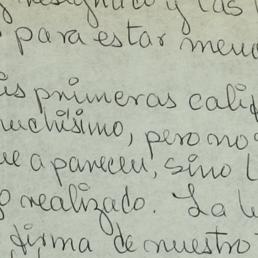 resignado y las
para estar menos
is primeras calif
muchísimo, pero no
ue aparecen, sino l
o realizado. La le
firma de nuestro